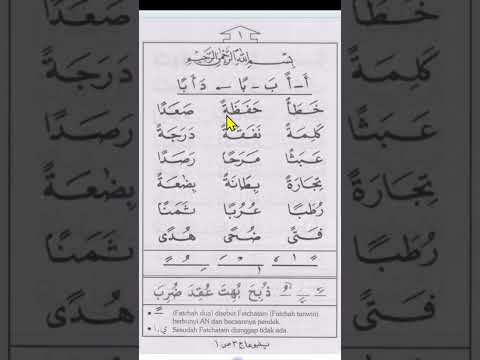 ١
بِسْمِ اللهِ الرَّحْمٰنِ الرَّحِيْمِ
أَ - أً بَ - بًا ــ دَأَبًا
خَطَأً حَفَظَةً صَعَدًا
كَلِمَةً نَفَقَةً دَرَجَةً
عَبَثًا مَرَحًا رَصَدًا
تِجَارَةً بِطَانَةً بِضٰعَةً
رُطَبًا عُرُبًا ثَمَنًا
فَتًى ضُحًى هُدًى
ذُبِحَ بُهِتَ عُقِدَ ضُرِبَ
(Fatchah dua) disebut Fatchatain (Fatchah tanwin)
berbunyi AN dan bacaannya pendek.
Sesudah Fatchatain dianggap tidak ada.